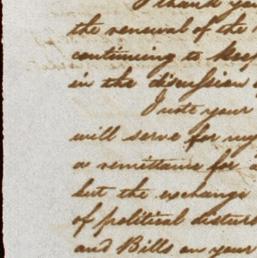 I thank you
the renewal of the
continuing to keep
in the discussion
I note your
will serve for my
a remittance for
but the exchange
of political disturb
and Bills on your